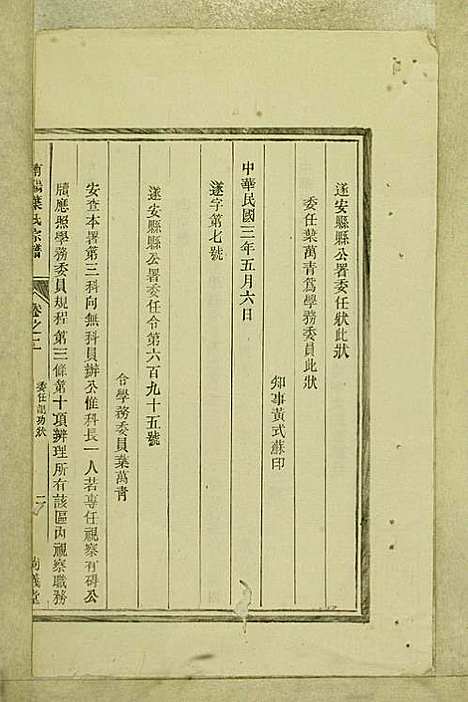 遂安縣縣公署委任狀此狀
委任葉萬青爲學務委員此狀
知事黃式蘇印
中華民國三年五月六日
遂字第七號
遂安縣縣公署委任令第六百九十五號
令學務委員葉萬青
安查本署第三科向無科員辦公惟科長一人若專任視察有碍公
牘應照學務委員規程第三條第十項辦理所有該區內視察職務
南陽葉氏宗譜
卷之二
委任部功狀